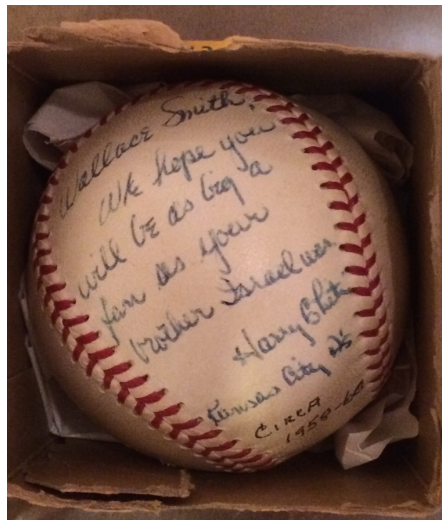 Wallace Smith,
We hope you
will be as big a
fan as your
brother Israel was
Harry Chiti
Kansas City A's
CIRCA
1958-60